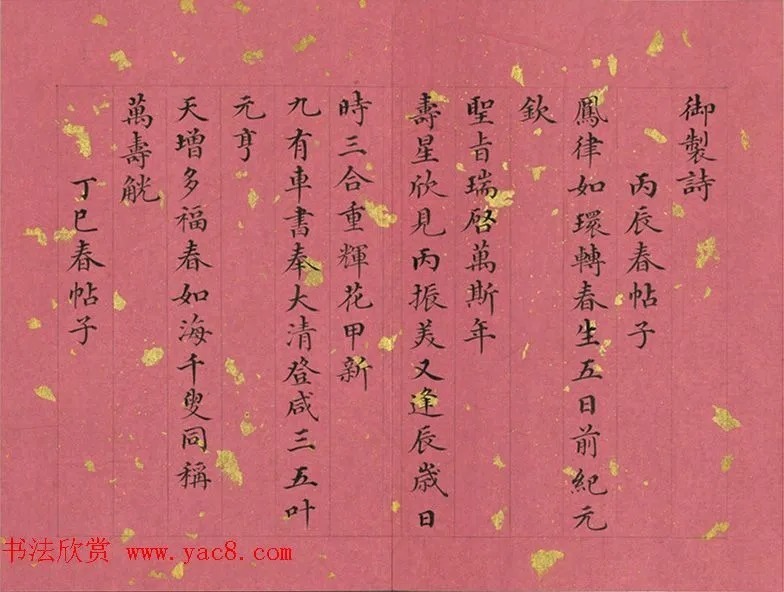 御製詩
丙辰春帖子
鳳律如環轉春生五日前紀元
欽
聖旨瑞啓萬斯年
壽星欣見丙振美又逢辰歲日
時三合重輝花甲新
九有車書奉大清登咸三五叶
元亨
天增多福春如海千叟同稱
萬壽觥
丁巳春帖子
书法欣赏 www.yac8.com